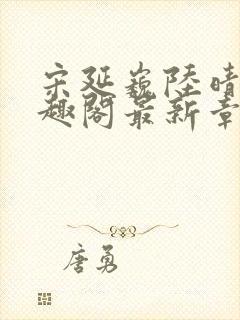 宋延巍陸晴
趣閣最新章
唐勇